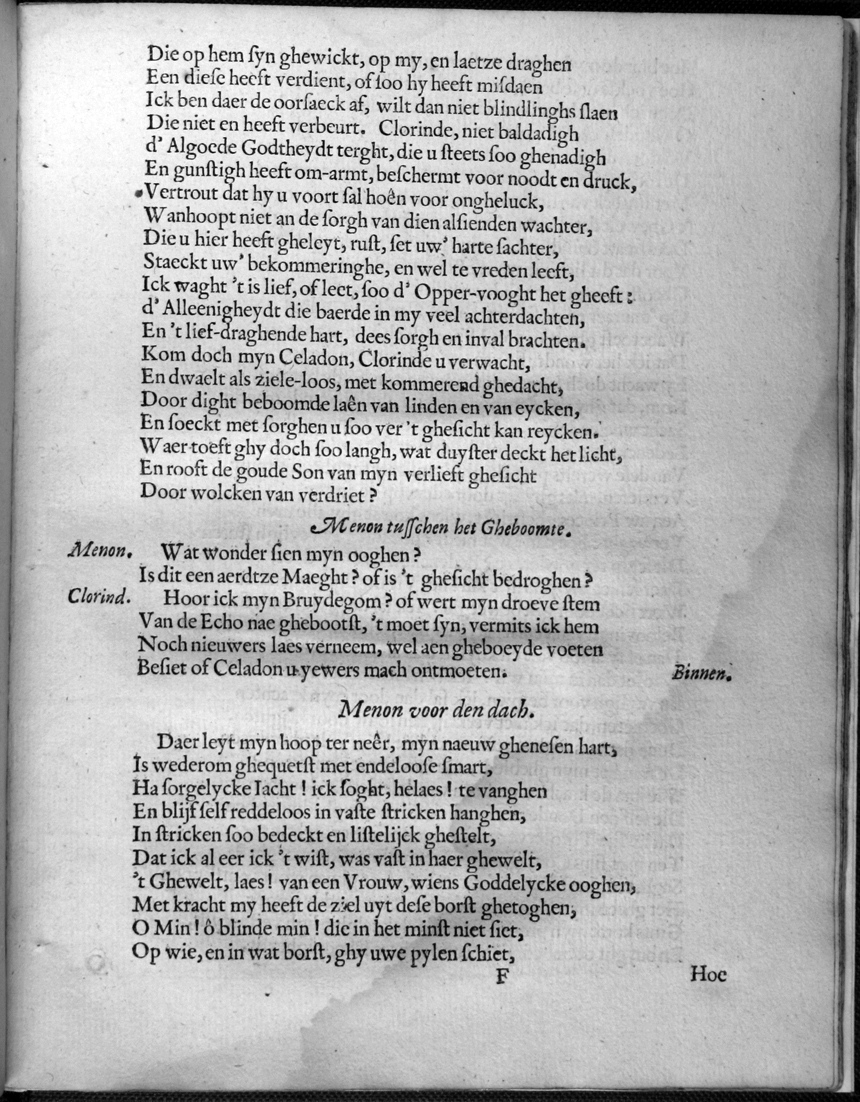 Die op hem ſyn ghewickt, op my, en laetze draghen
Een dieſe heeft verdient, of ſoo hy heeft miſdaen
Ick ben daer de oorſaeck af, wilt dan niet blindlinghs ſlaen
Die niet en heeft verbeurt. Clorinde, niet baldadigh
d' Algoede Godtheydt terght, die u ſteets ſoo ghenadigh
En gunſtigh heeft om-armt, beſchermt voor noodt en druck,
Vertrout dat hy u voort ſal hoên voor ongheluck,
Wanhoopt niet an de ſorgh van dien alſienden wachter,
Die u hier heeft gheleyt, ruſt, ſet uw' harte ſachter,
Staeckt uw' bekommeringhe, en wel te vreden leeft,
Ick waght 't is lief, of leet, ſoo d' Opper-vooght het gheeft:
d' Alleenigheydt die baerde in my veel achterdachten,
En 't lief-draghende hart, dees ſorgh en inval brachten.
Kom doch myn Celadon, Clorinde u verwacht,
En dwaelt als ziele-loos, met kommerend ghedacht,
Door dight beboomde laên van linden en van eycken,
En ſoeckt met ſorghen u ſoo ver 't gheſicht kan reycken.
Waer toeft ghy doch ſoo langh, wat duyſter deckt het licht,
En rooft de goude Son van myn verlieft gheſicht
Door wolcken van verdriet?
Menon tuſſchen het Gheboomte.
Menon. Wat wonder ſien myn ooghen?
Is dit een aerdtze Maeght? of is 't gheſicht bedroghen?
Clorind. Hoor ick myn Bruydegom? of wert myn droeve ſtem
Van de Echo nae ghebootſt, 't moet ſyn, vermits ick hem
Noch nieuwers laes verneem, wel aen gheboeyde voeten
Beſiet of Celadon u yewers mach ontmoeten. Binnen.
Menon voor den dach.
Daer leyt myn hoop ter neêr, myn naeuw gheneſen hart,
Is wederom ghequetſt met endelooſe ſmart,
Ha ſorgelycke Iacht! ick ſoght, helaes! te vanghen
En blijf ſelf reddeloos in vaſte ſtricken hanghen,
In ſtricken ſoo bedeckt en liſtelijck gheſtelt,
Dat ick al eer ick 't wiſt, was vaſt in haer ghewelt,
't Ghewelt, laes! van een Vrouw, wiens Goddelycke ooghen,
Met kracht my heeft de ziel uyt deſe borſt ghetoghen,
O Min! ô blinde min! die in het minſt niet ſiet,
Op wie, en in wat borſt, ghy uwe pylen ſchiet,
F Hoe